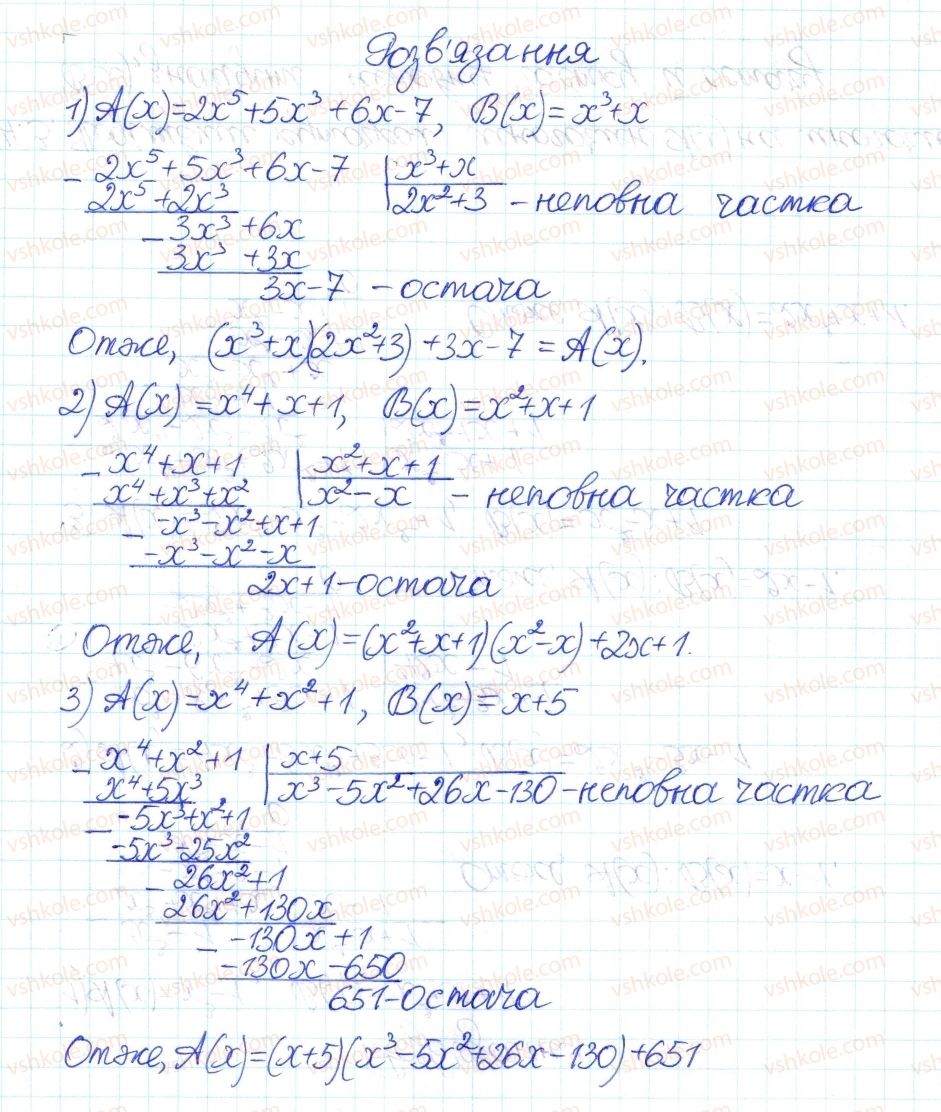 Розв'язання
1) A(x)=2x⁵+5x³+6x-7, B(x)=x³+x
- 2x⁵+5x³+6x-7 | x³+x
2x⁵+2x³ 2x²+3 - неповна частка
- 3x³+6x
3x³+3x
3x-7 - остача
Отже, (x³+x)(2x²+3)+3x-7=A(x).
2) A(x)=x⁴+x+1, B(x)=x²+x+1
- x⁴+x+1 | x²+x+1
x⁴+x³+x² x²-x - неповна частка
- -x³-x²+x+1
-x³-x²-x
2x+1 - остача
Отже, A(x)=(x²+x+1)(x²-x)+2x+1.
3) A(x)=x⁴+x²+1, B(x)=x+5
- x⁴+x²+1 | x+5
x⁴+5x³ x³-5x²+26x-130 - неповна частка
- -5x³+x²+1
-5x³-25x²
- 26x²+1
26x²+130x
- -130x+1
-130x-650
651 - остача
Отже, A(x)=(x+5)(x³-5x²+26x-130)+651